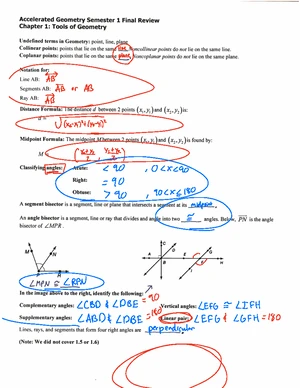 Accelerated Geometry Semester 1 Final Review
Chapter 1: Tools of Geometry
Undefined terms in Geometry: point, line, plane
Collinear points: points that lie on the same line. Noncollinear points do not lie on the same line.
Coplanar points: points that lie on the same plane. Noncoplanar points do not lie on the same plane.
Notation for:
Line AB: AB
Segments AB: AB or AB
Ray AB: AB
Distance Formula: The distance d between 2 points (x₁, y₁) and (x₂, y₂) is:
d = √(x₂-x₁)²+(y₂-y₁)²
Midpoint Formula: The midpoint M between 2 points (x₁, y₁) and (x₂, y₂) is found by:
M = (x₁+x₂/2, y₁+y₂/2)
Classifying angles: Acute: < 90, 0<x<90
Right: = 90
Obtuse: > 90, 90<x<180
A segment bisector is a segment, line or plane that intersects a segment at its midpoint.
An angle bisector is a segment, line or ray that divides and angle into two ≅ angles. Below, PN is the angle
bisector of ∠MPR.
M N P R
C D A B E
E F G H I
∠MPN ≅ ∠RPN
In the image above to the right, identify the following:
Complementary angles: ∠CBD & ∠DBE = 90 Vertical angles: ∠EFG ≅ ∠IFH
Supplementary angles: ∠ABD & ∠DBE = 180 Linear pair: ∠EFG & ∠GFH = 180
Lines, rays, and segments that form four right angles are perpendicular
(Note: We did not cover 1.5 or 1.6)